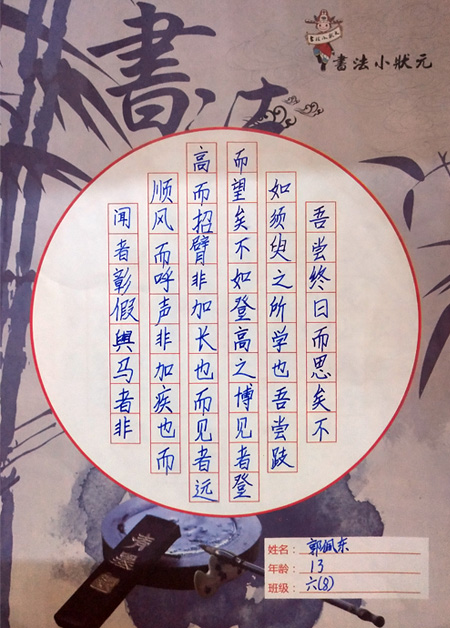 書法
書法小狀元
吾尝终日而思矣不
如须臾之所学也吾尝跂
而望矣不如登高之博见者登
高而招臂非加长也而见者远
顺风而呼声非加疾也而
闻者彰假舆马者非
姓名：郭佩东
年龄：13
班级：六(8)